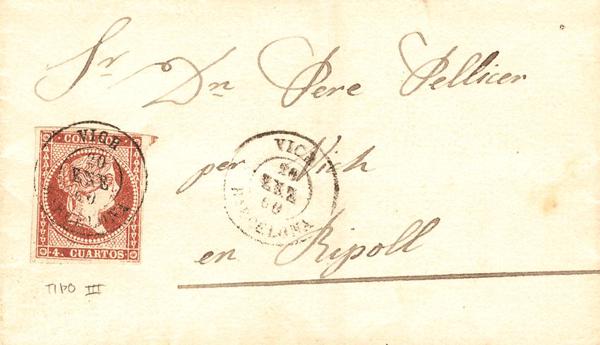 Sr Dn Pere Pellicer
per Vich
en Ripoll
CORREOS
4. CUARTOS
VICH
20
ENE
60
BARCELONA
VICH
20
ENE
60
BARCELONA
TIPO III